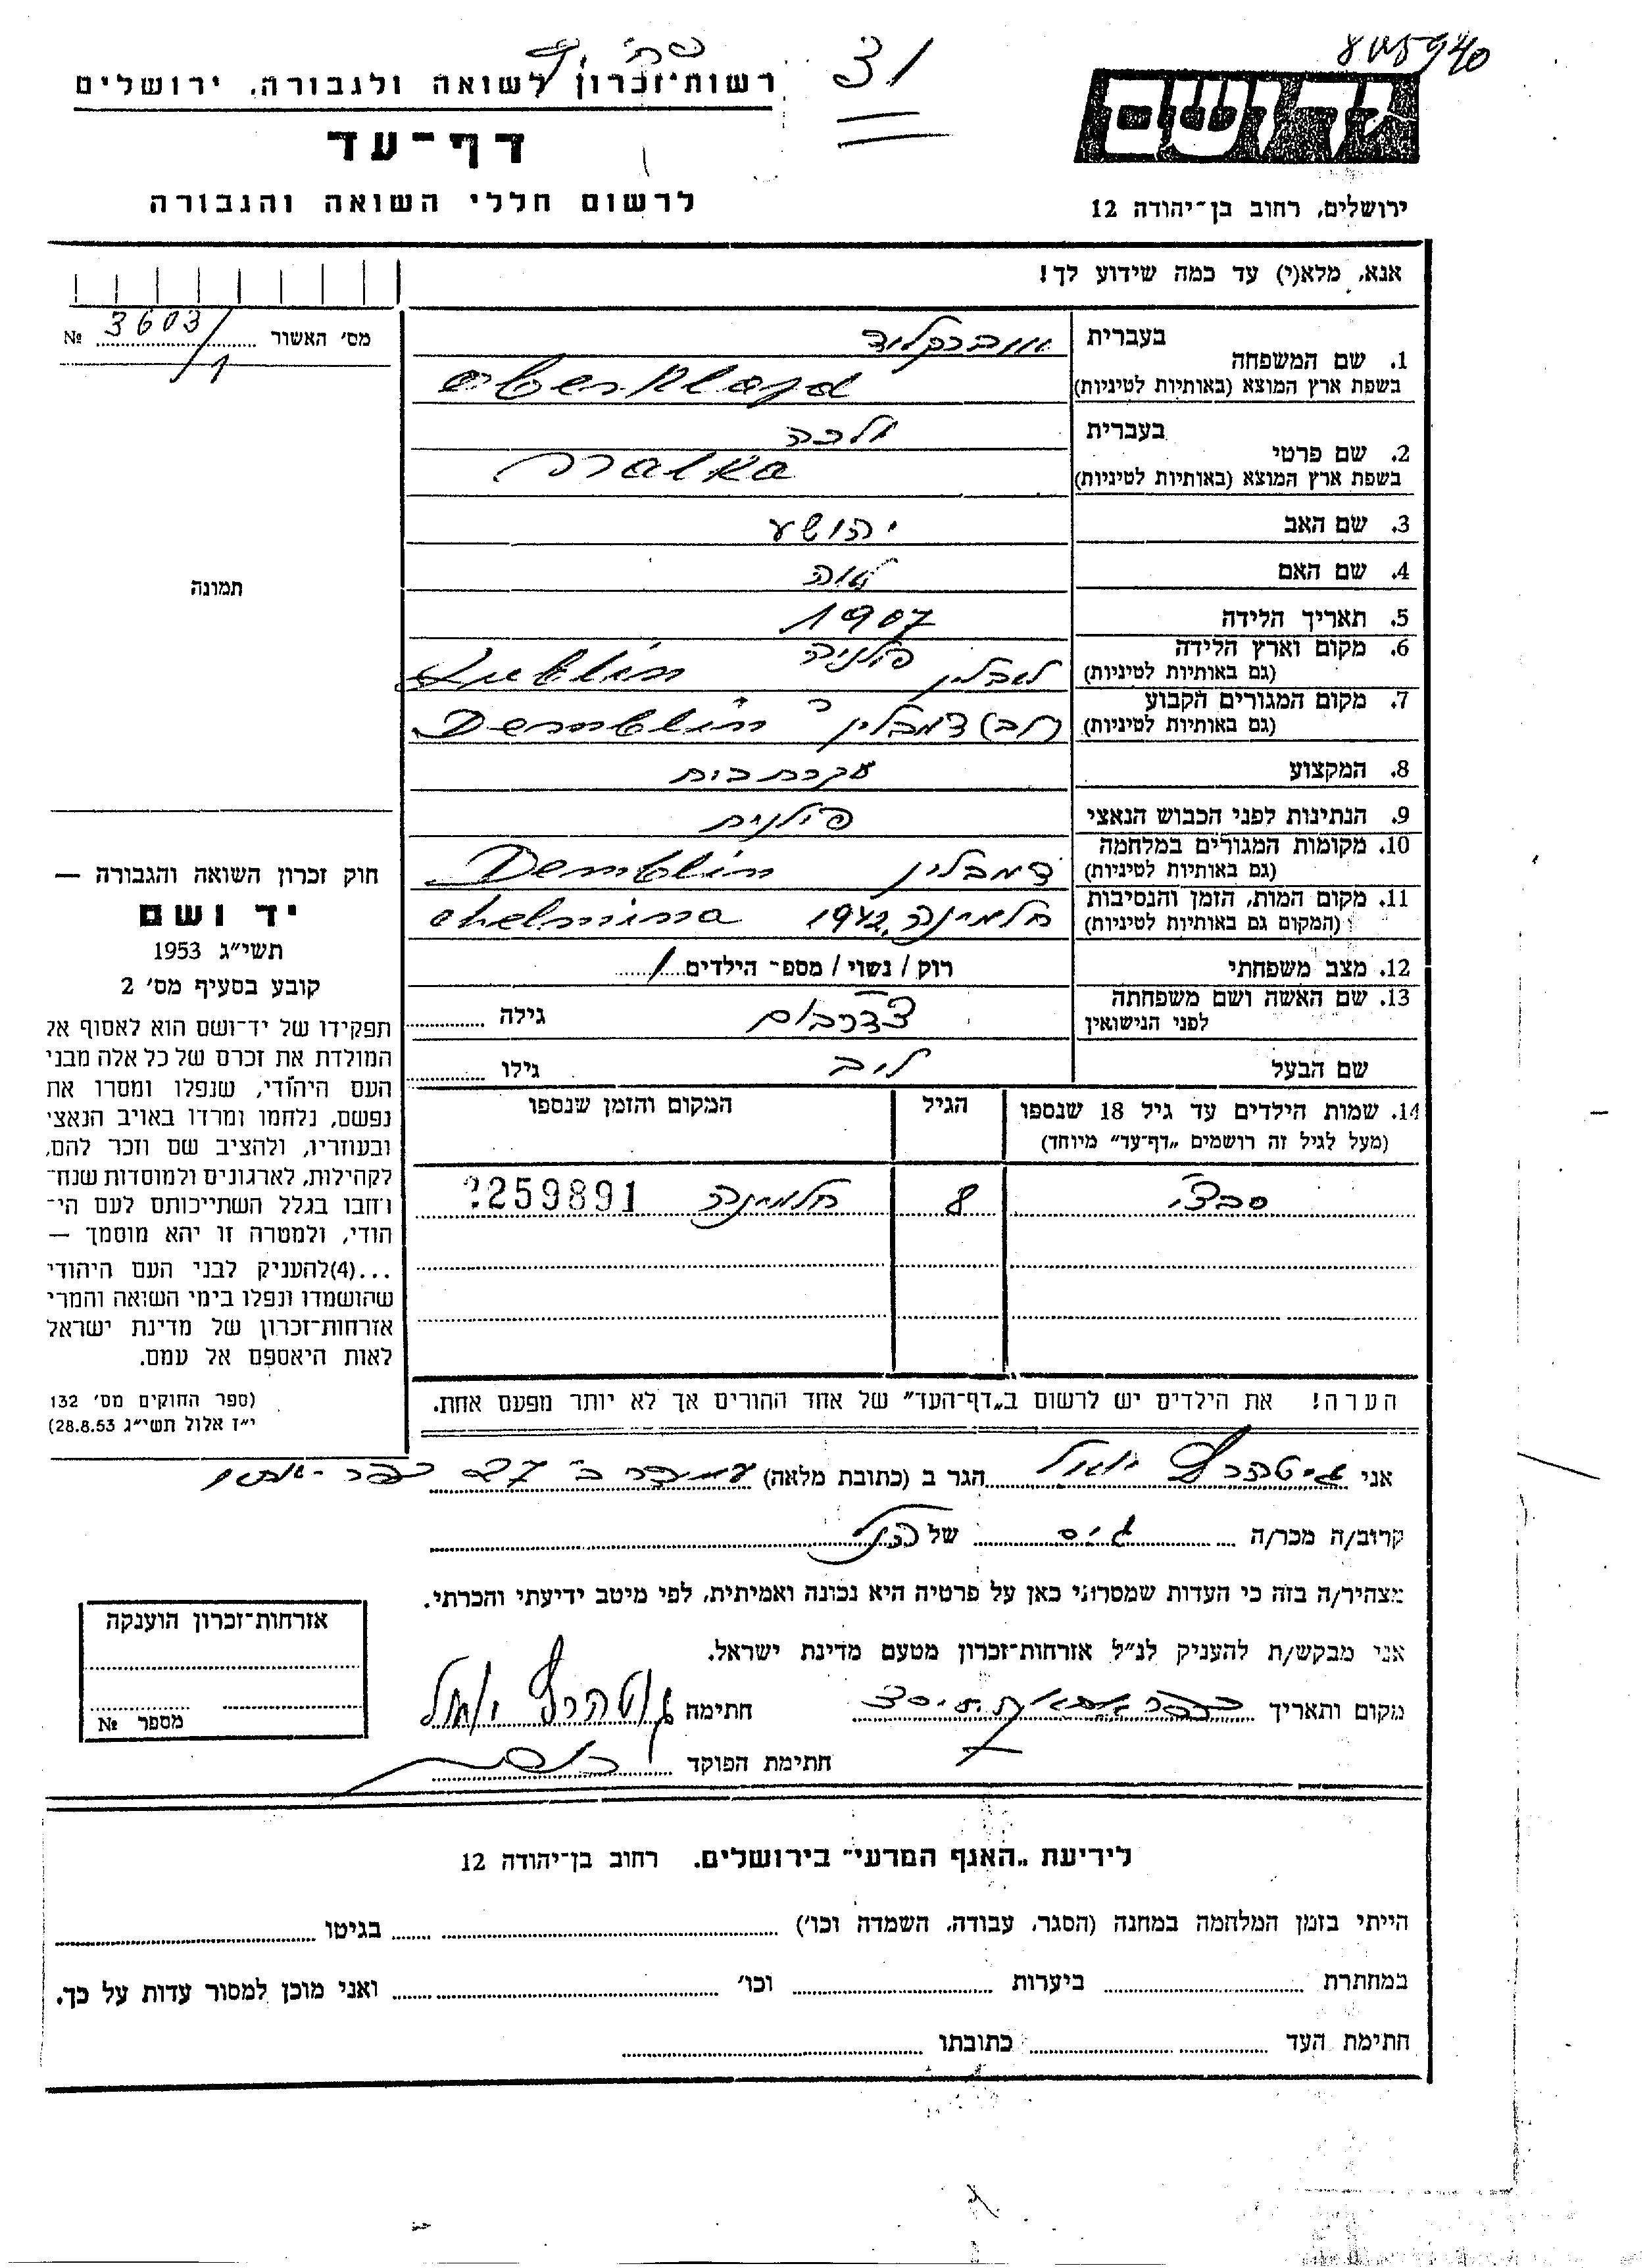 805940
31
רשות־זכרון לשואה ולגבורה. ירושלים
דף־עד
לרשום חללי השואה והגבורה
ידושם
ירושלים, רחוב בן־יהודה 12
אנא, מלא(י) עד כמה שידוע לך!
מס׳ האשור 3603/1 №
תמונה
1. שם המשפחה
בעברית
בשפת ארץ המוצא (באותיות לטיניות)
2. שם פרטי
בעברית מלכה
בשפת ארץ המוצא (באותיות לטיניות) malka
3. שם האב יהושע
4. שם האם לאה
5. תאריך הלידה 1907
6. מקום וארץ הלידה פולניה
(גם באותיות לטיניות) לובלין Lublin
7. מקום המגורים הקבוע
(גם באותיות לטיניות) דמבלין Demblin
8. המקצוע עקרת בית
9. הנתינות לפני הכבוש הנאצי פולנית
10. מקומות המגורים במלחמה
(גם באותיות לטיניות) דמבלין Demblin
11. מקום המות, הזמן והנסיבות
(המקום גם באותיות לטיניות) חלמינה, 1942 chelmina
12. מצב משפחתי רוק / נשוי / מספ־ הילדים 1
13. שם האשה ושם משפחתה
לפני הנישואין גילה
שם הבעל לייב גילו
14. שמות הילדים עד גיל 18 שנספו
(מעל לגיל זה רושמים „דף־עד״ מיוחד)
הגיל
המקום והזמן שנספו
8 חלמינה 259891
הערה! את הילדים יש לרשום ב„דף־העד״ של אחד ההורים אך לא יותר מפעם אחת.
חוק זכרון השואה והגבורה —
יד ושם
תשי״ג 1953
קובע בסעיף מס׳ 2
תפקידו של יד־ושם הוא לאסוף אל
המולדת את זכרם של כל אלה מבני
העם היהודי, שנפלו ומסרו את
נפשם, נלחמו ומרדו באויב הנאצי
ובעוזריו, ולהציב שם וזכר להם,
לקהילות, לארגונים ולמוסדות שנח־
רבו בגלל השתייכותם לעם הי־
הודי, ולמטרה זו יהא מוסמך —
...(4)להעניק לבני העם היהודי
שהושמדו ונפלו בימי השואה והמרי
אזרחות־זכרון של מדינת ישראל
לאות היאספם אל עמם.
(ספר החוקים מס׳ 132
י״ז אלול תשי״ג 28.8.53)
אני הגר ב (כתובת מלאה)
קרוב/ה מכר/ה גיס של הנ״ל
מצהיר/ה בזה כי העדות שמסרתי כאן על פרטיה היא נכונה ואמיתית, לפי מיטב ידיעתי והכרתי.
אני מבקש/ת להעניק לנ״ל אזרחות־זכרון מטעם מדינת ישראל.
מקום ותאריך חתימה
חתימת הפוקד
אזרחות־זכרון הוענקה
מספר №
לידיעת „האגף המדעי״ בירושלים. רחוב בן־יהודה 12
הייתי בזמן המלחמה במחנה (הסגר, עבודה, השמדה וכו׳) בגיטו
במחתרת ביערות וכו׳ ואני מוכן למסור עדות על כך.
חתימת העד כתובתו